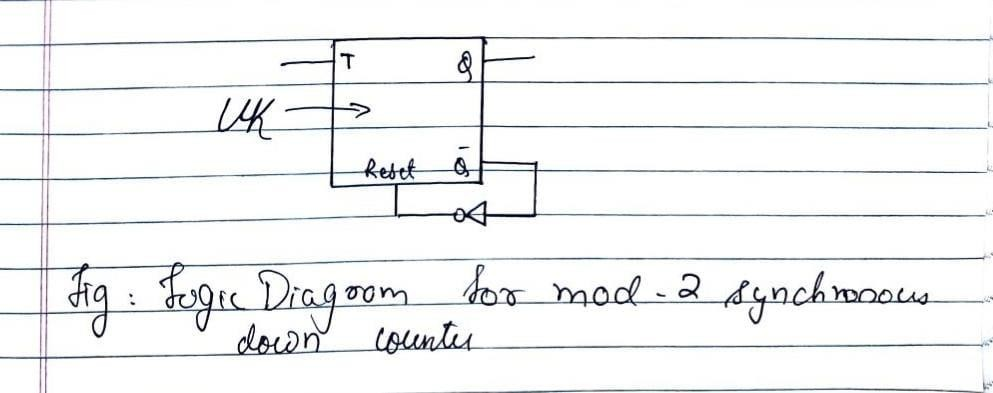 T Q
CLK
Reset Q̄
Fig : Logic Diagram for mod-2 synchronous
down counter